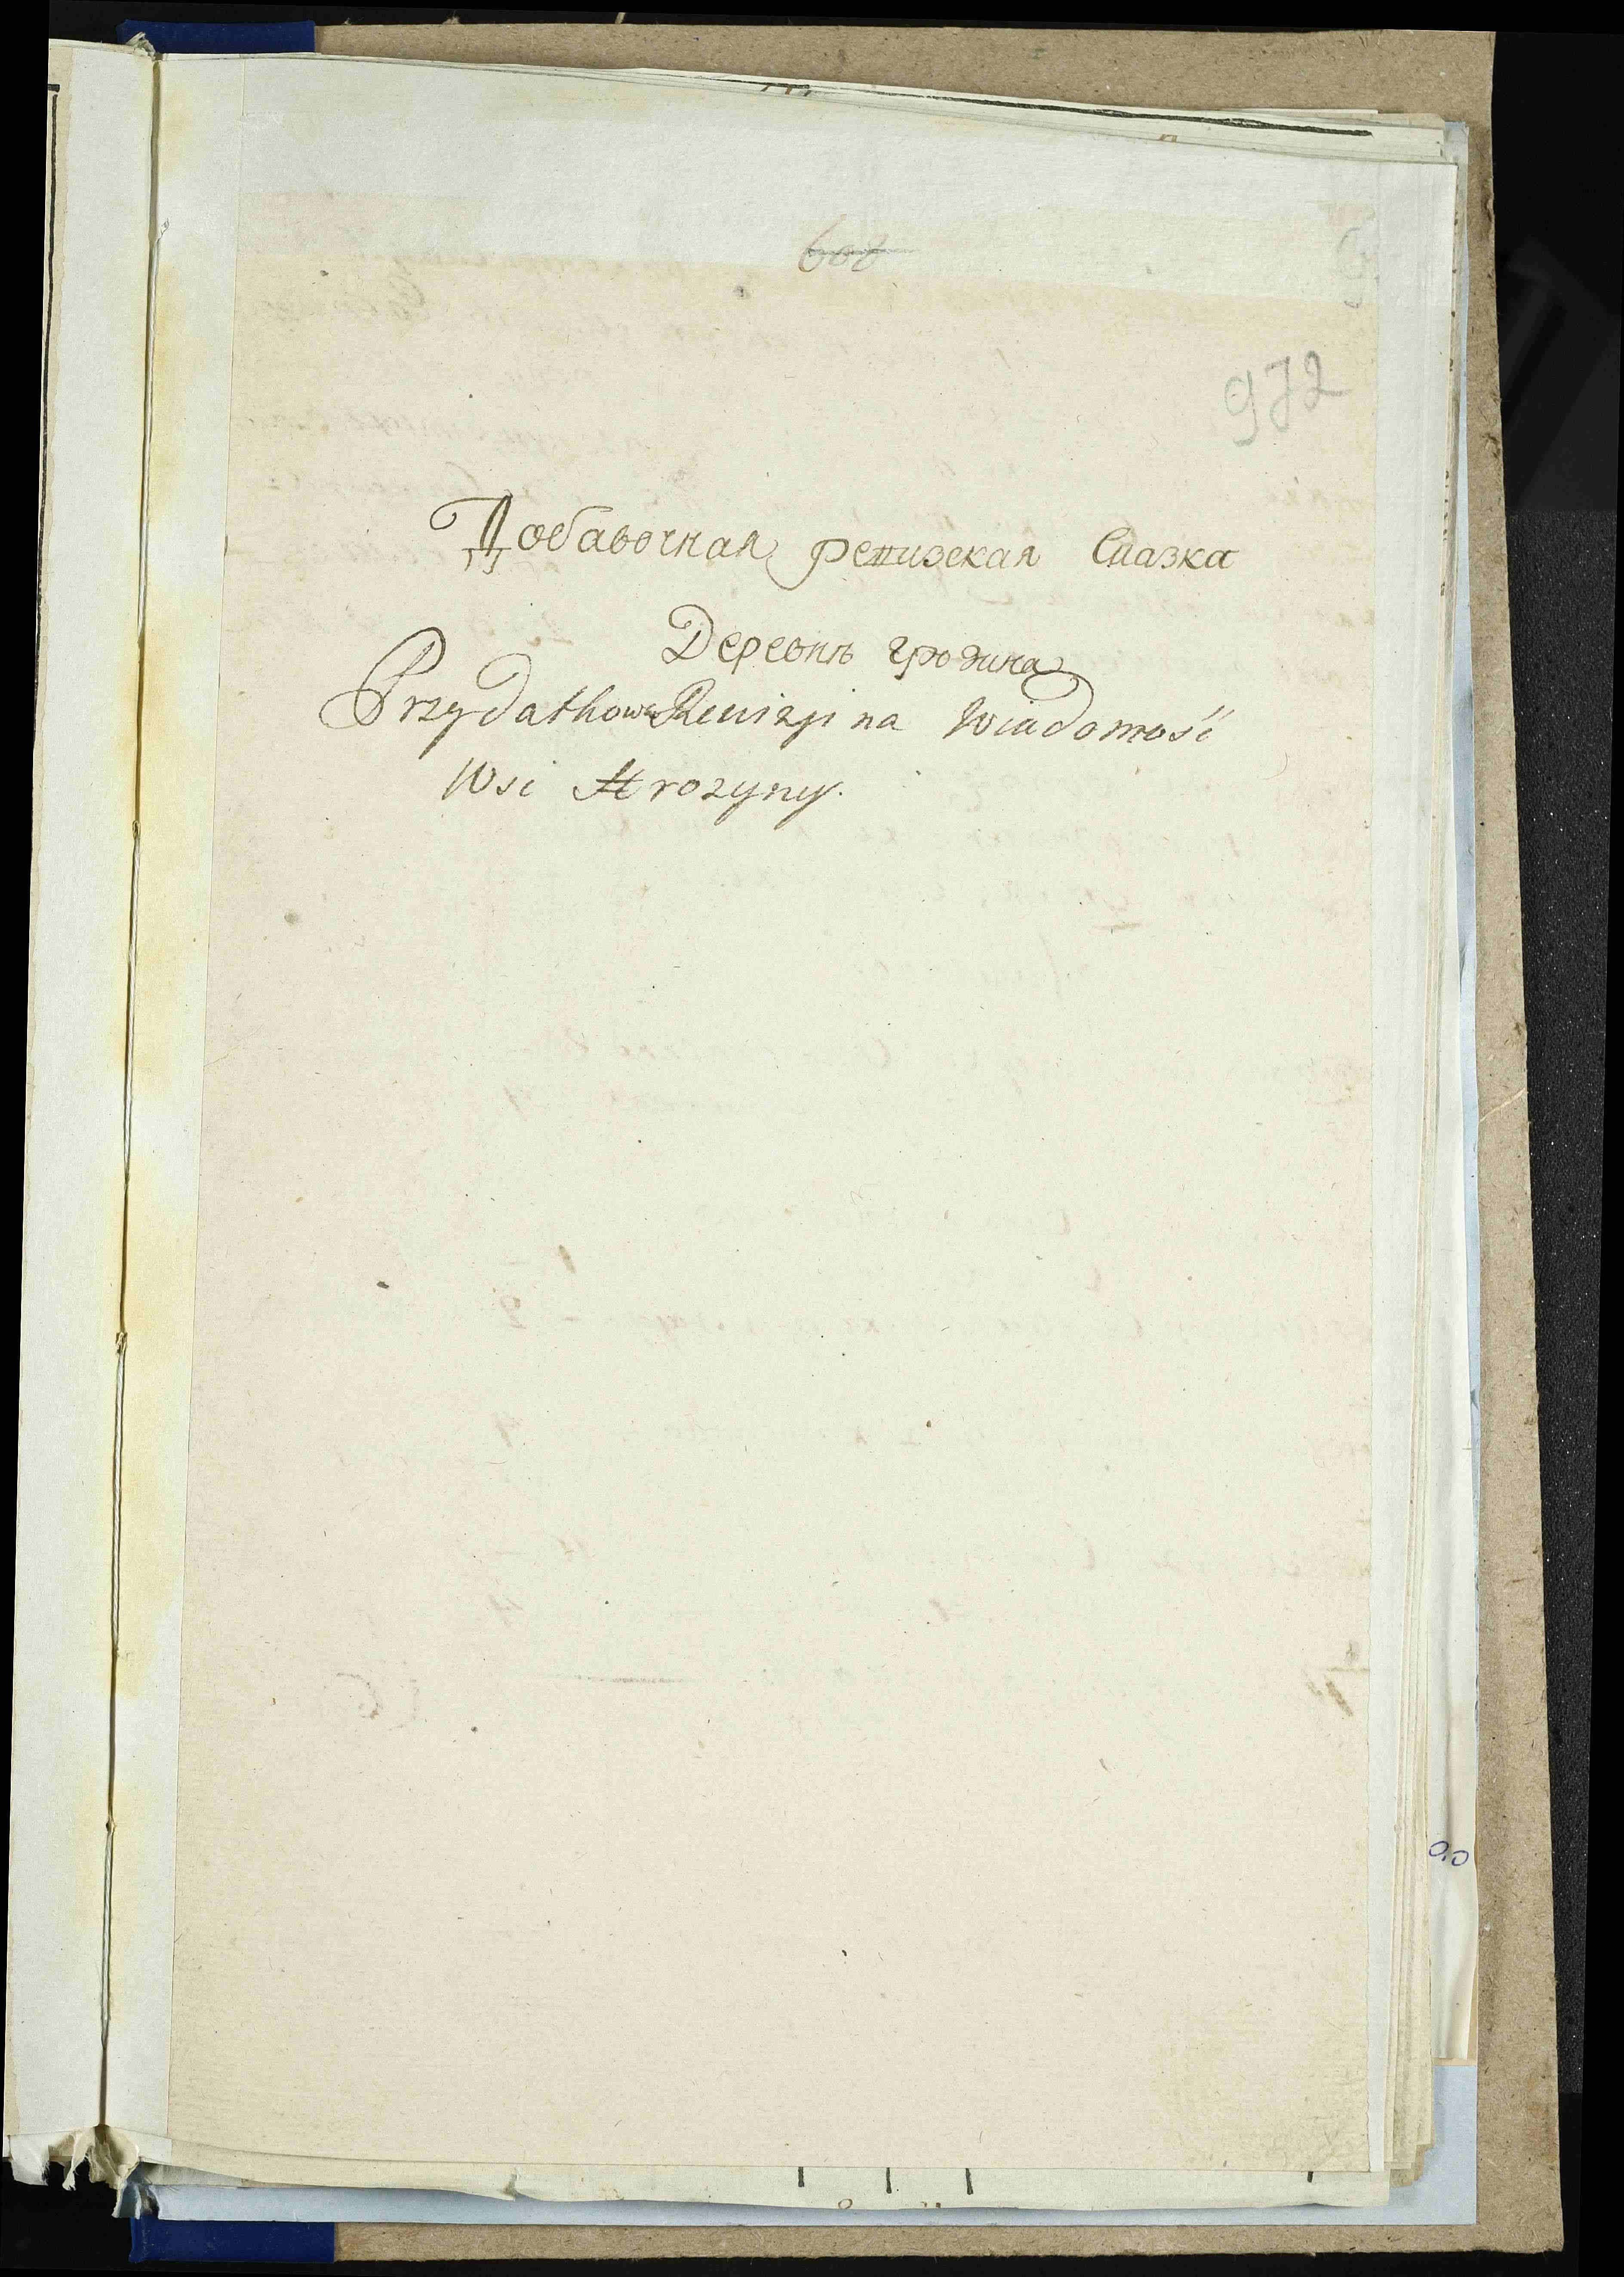 608
972
Добавочная ревизская Сказка
Деревнѣ грозина
Przydatkowa Rewizji na Wiadomość
Wsi Hrozyny.